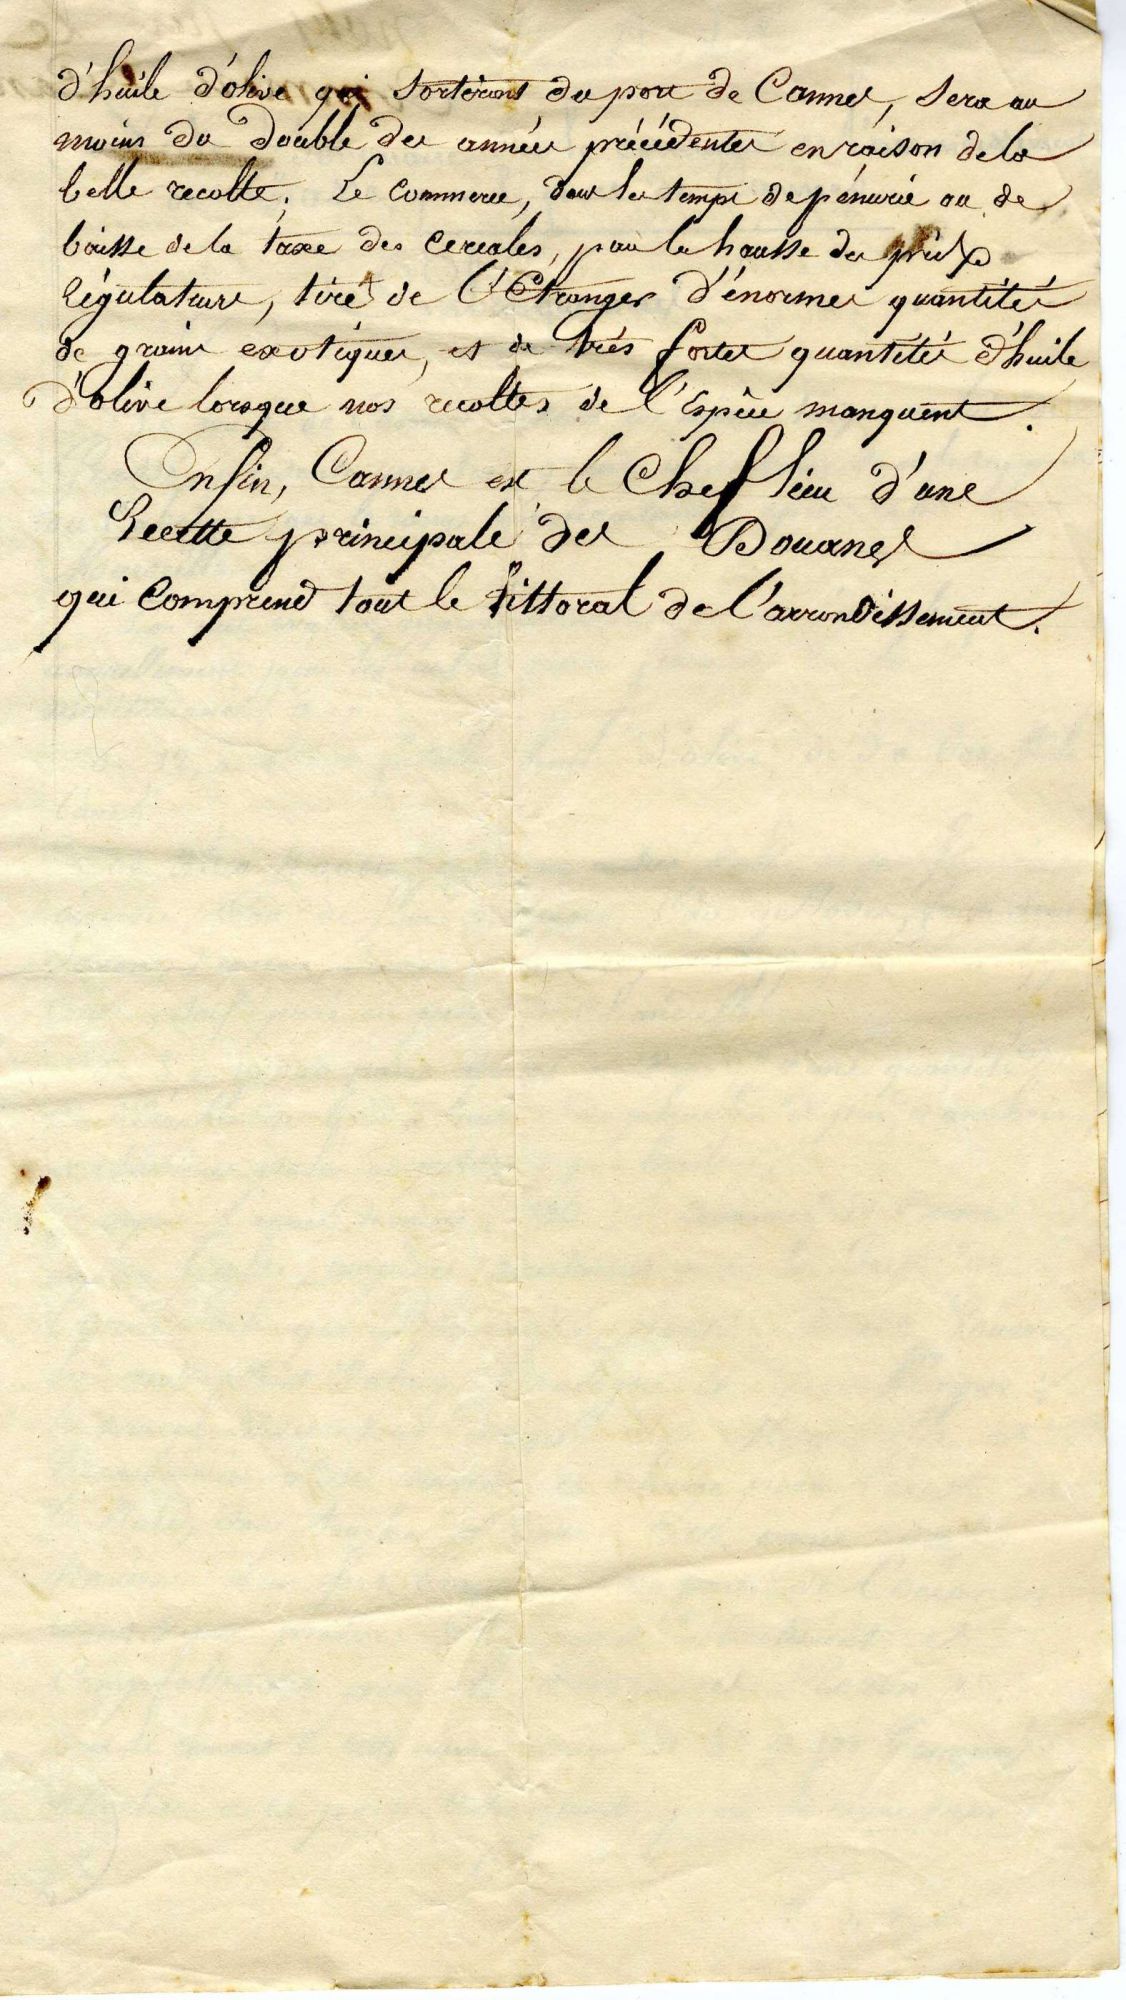 d'huile d'olive qui sortiront du port de Cannes, sera au
moins du double des années précédentes en raison de la
belle recolte. Le commerce, dans les temps de pénurie ou de
baisse de la taxe des cereales, par la hausse des prix
régulateurs, tire de l'Etranger d'énormes quantités
de grains exotiques, et de très fortes quantités d'huile
d'olive lorsque nos recoltes de l'Espèce manquent.
Enfin, Cannes est le Chef lieu d'une
Recette principale des Douanes
qui comprend tout le littoral de l'arrondissement.